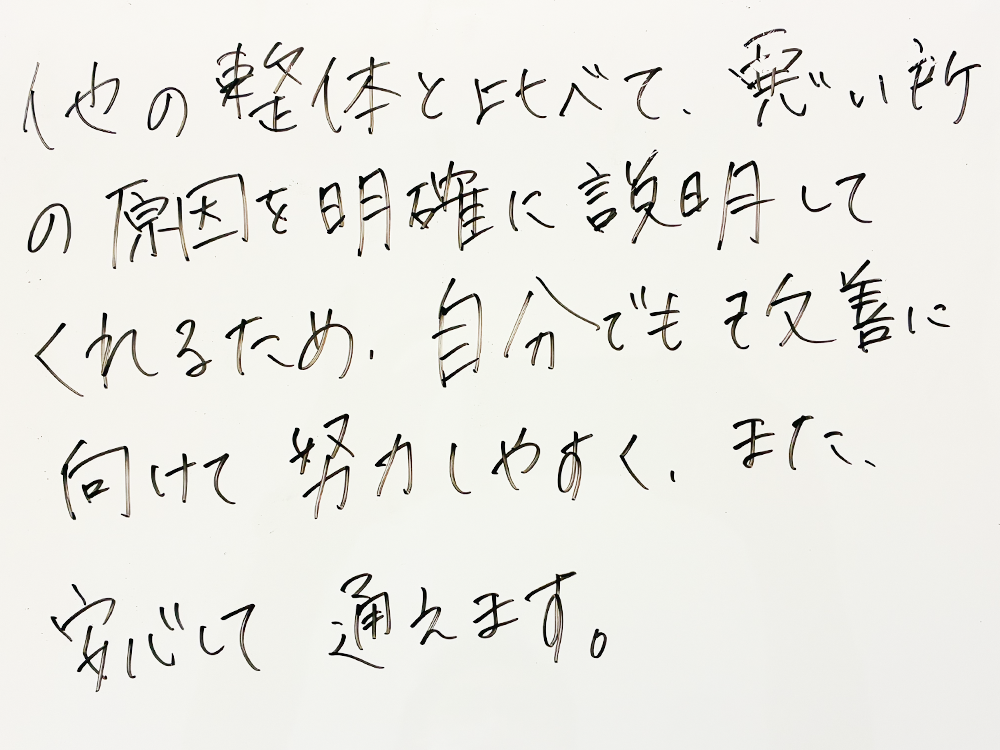 他の整体と比べて、悪い所
の原因を明確に説明して
くれるため、自分でも改善に
向けて努力しやすく、また、
安心して通えます。